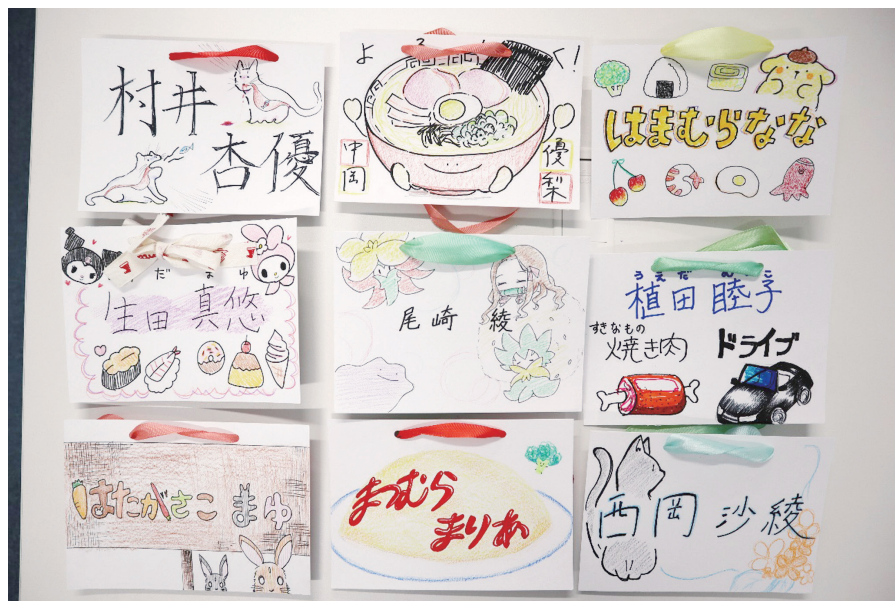 村井
杏優
よ ろ く!
中岡
優梨
はまむらなな
だ ま ゆ
生田 真悠
尾崎 綾
うえだ むつこ
植田睦子
すきなもの
焼き肉
ドライブ
はたがさこ まゆ
まつむら
まりあ
西岡 沙綾